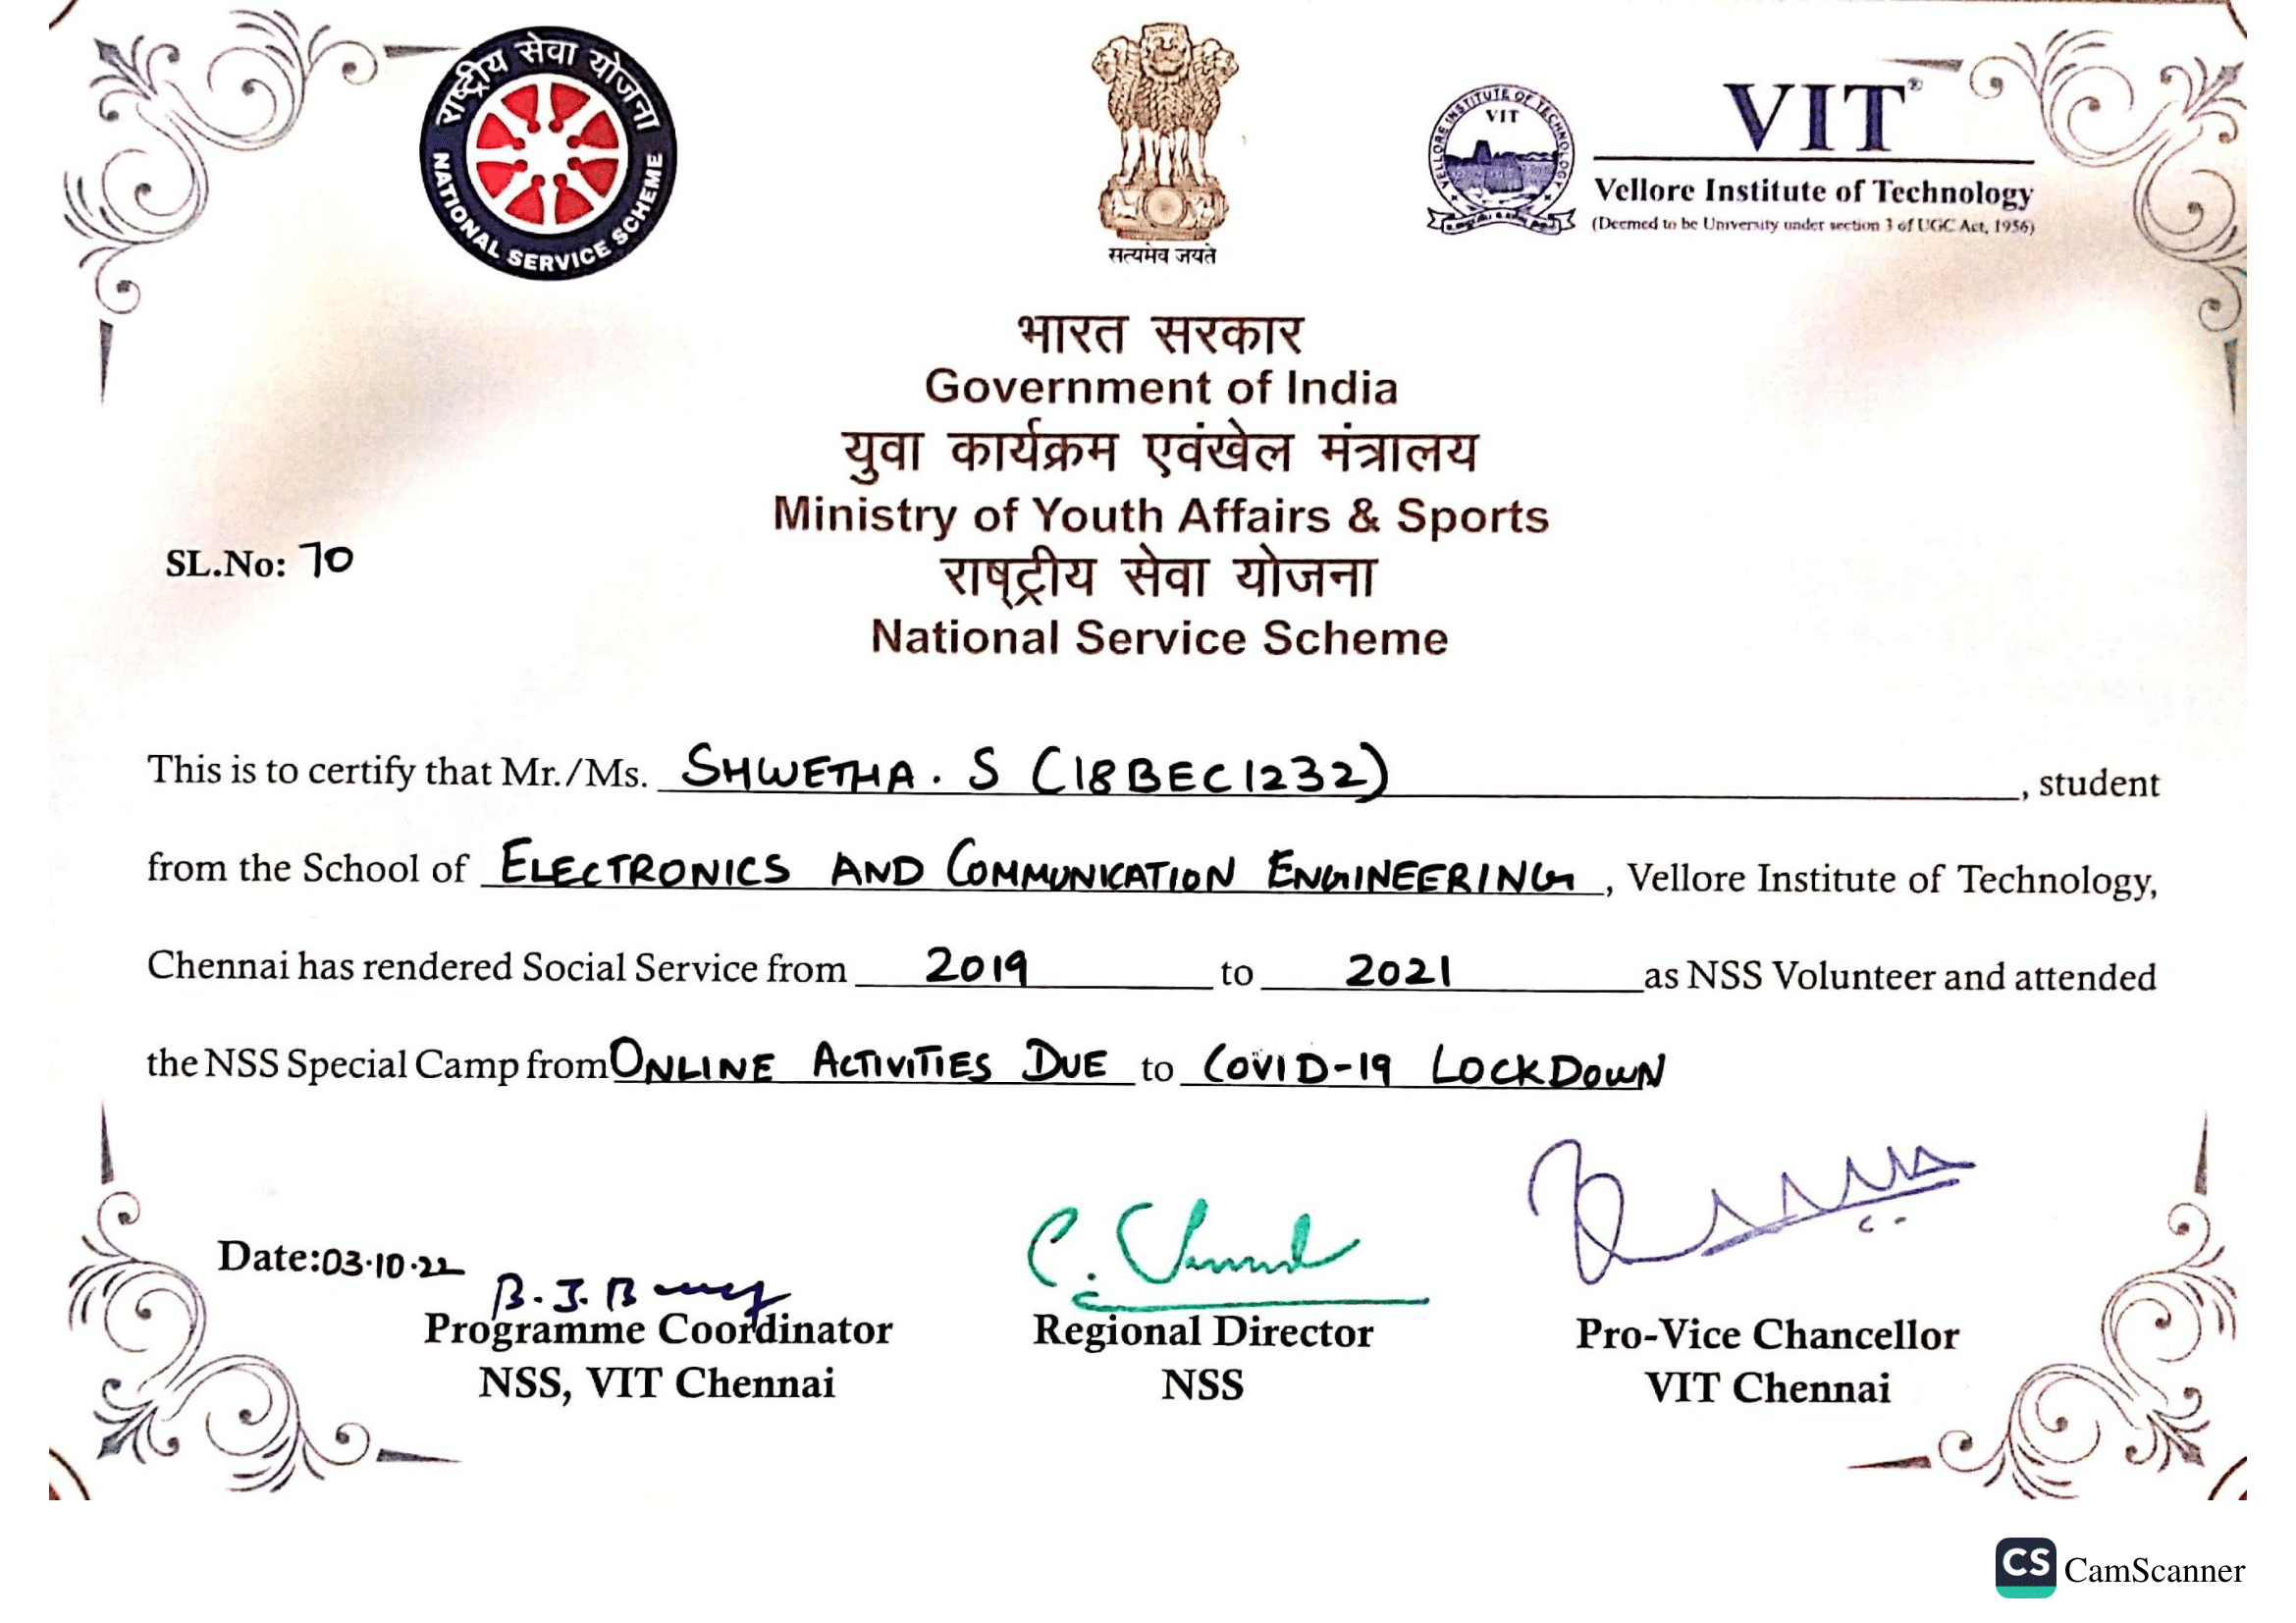 राष्ट्रीय सेवा योजना
NATIONAL SERVICE SCHEME
सत्यमेव जयते
VELLORE INSTITUTE OF TECHNOLOGY
VIT
VIT®
Vellore Institute of Technology
(Deemed to be University under section 3 of UGC Act, 1956)
भारत सरकार
Government of India
युवा कार्यक्रम एवंखेल मंत्रालय
Ministry of Youth Affairs & Sports
SL.No: 70
राष्ट्रीय सेवा योजना
National Service Scheme
This is to certify that Mr./Ms. SHWETHA. S (18BEC1232), student
from the School of ELECTRONICS AND COMMUNICATION ENGINEERING, Vellore Institute of Technology,
Chennai has rendered Social Service from 2019 to 2021 as NSS Volunteer and attended
the NSS Special Camp from ONLINE ACTIVITIES DUE to COVID-19 LOCKDOWN
Date:03.10.22
Programme Coordinator
NSS, VIT Chennai
Regional Director
NSS
Pro-Vice Chancellor
VIT Chennai
CS CamScanner